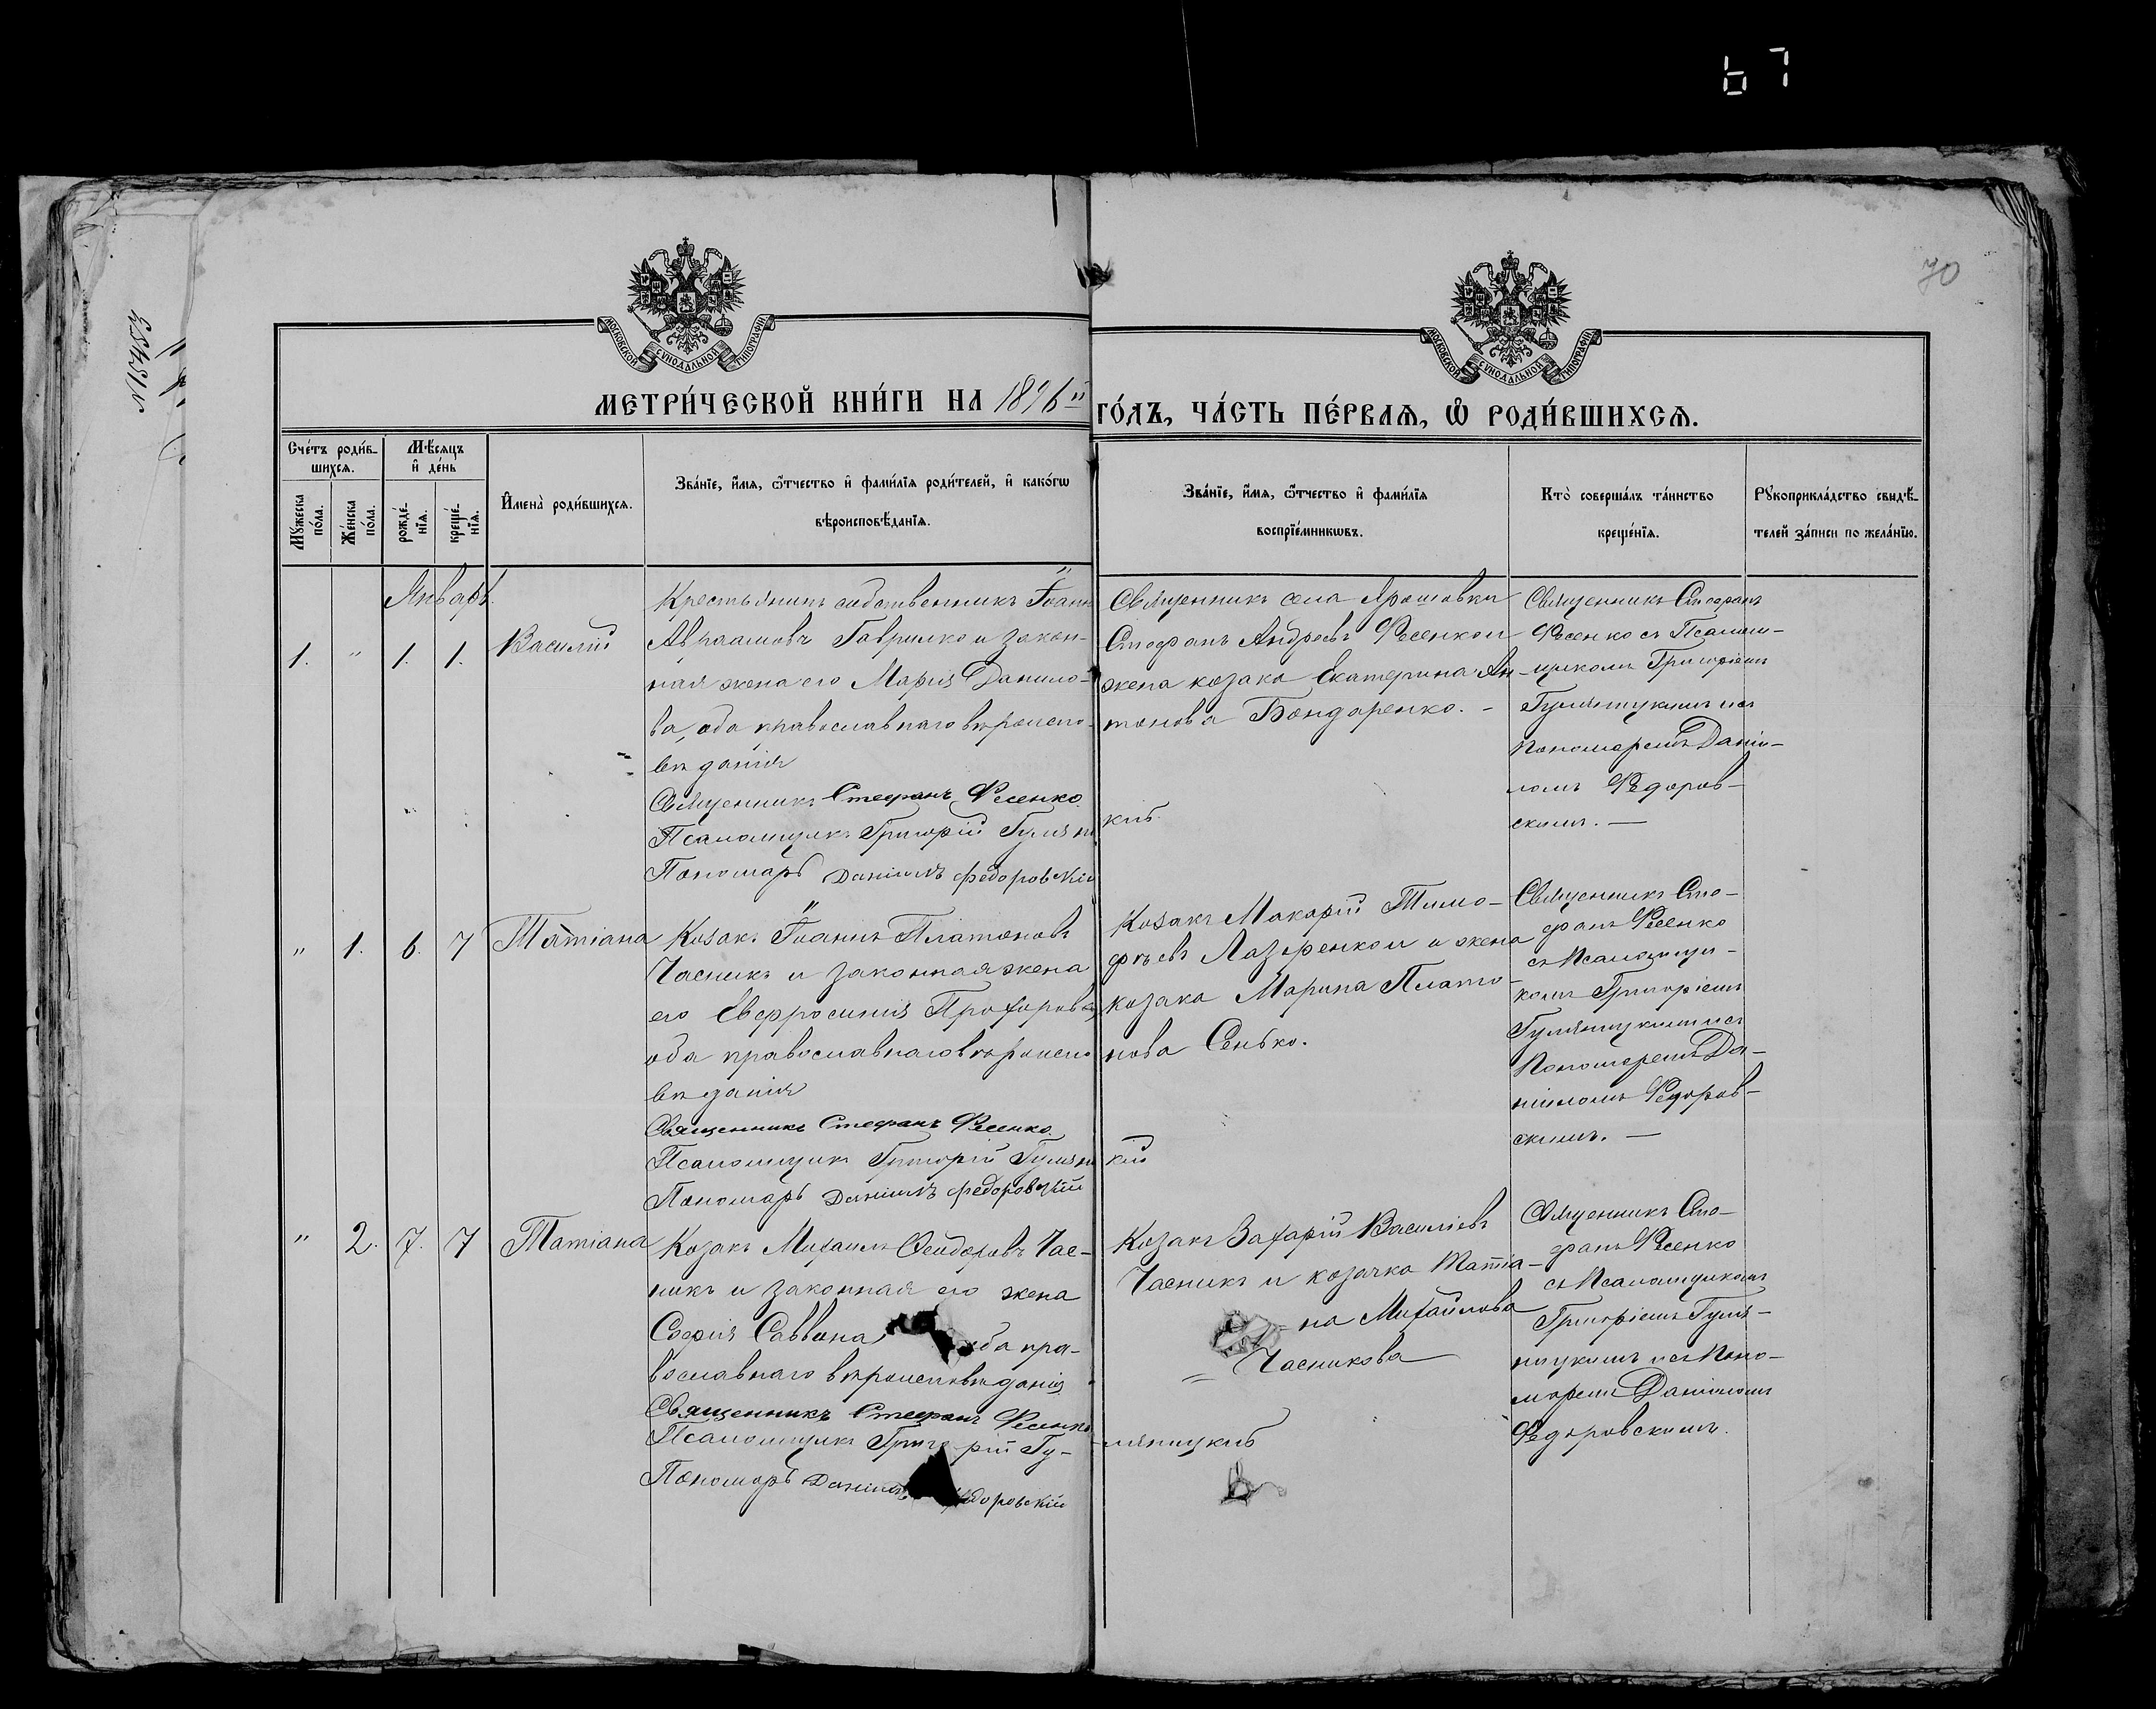 67
70
№15453
МОСКОВСКОЙ СѴНОДАЛЬНОЙ ТИПОГРАФІИ
МОСКОВСКОЙ СѴНОДАЛЬНОЙ ТИПОГРАФІИ
МЕТРИ́ЧЕСКОЙ КНИ́ГИ НА 1896й ГО́ДЪ, ЧА́СТЬ ПЕ́РВАѦ, Ѡ҆ РОДИ́ВШИХСѦ.
Сче́тъ роди́в-
шихсѧ.
Мꙋжеска по́ла.
Же́нска по́ла.
Мѣ́сѧцъ и҆ де́нь
рожде́-
нїѧ.
креще́-
нїѧ.
И҆мена̀ роди́вшихсѧ.
Зва́нїе, и҆́мѧ, ѻ҆́тчество и҆ фами́лїѧ роди́телей, и҆ како́гѡ
вѣроисповѣ́данїѧ.
Зва́нїе, и҆́мѧ, ѻ҆́тчество и҆ фами́лїѧ
воспрїе́мникѡвъ.
Кто̀ соверша́лъ та́инство
креще́нїѧ.
Рꙋкоприкла́дство свидѣ́-
телей за́писи по жела́нїю.
Январь.
1. " 1. 1. Василій
Крестьянинъ собственникъ Іоаннъ
Авраамовъ Гаврилко и закон-
ная жена его Марія Данило-
ва, оба православнаго вѣроиспо-
вѣданія
Священникъ Стефанъ Фесенко
Псаломщикъ Григорій Гуляницкій
Пономарь Даніилъ Федоровскій
Священникъ села Ярошовки
Стефанъ Андреевъ Фесенко и
жена козака Екатерина Ан-
тонова Бондаренко. -
Священникъ Стефанъ
Фесенко съ Псалом-
щикомъ Григоріемъ
Гуляницкимъ и съ
Пономаремъ Даніи-
ломъ Федоров-
скимъ. —
" 1. 6. 7 Татіана
Козакъ Іоаннъ Платоновъ
Часникъ и законная жена
его Евфросинія Прохорова
оба православнаго вѣроиспо
вѣданія
Священникъ Стефанъ Фесенко
Псаломщикъ Григорій Гуляницкій
Пономарь Даніилъ Федоровскій
Козакъ Макарій Тимо-
фѣевъ Лазоренко и жена
козака Марина Плато-
нова Сенько.
Священникъ Сте-
фанъ Фесенко
съ Псаломщи-
комъ Григоріемъ
Гуляницкимъ и съ
Пономаремъ Да-
ніиломъ Федоров-
скимъ. —
" 2. 7. 7 Татіана
Козакъ Михаилъ Феодоровъ Час-
никъ и законная его жена
Софія Саввина оба пра-
вославнаго вѣроисповѣданія
Священникъ Стефанъ Фесенко
Псаломщикъ Григорій Гу-ляницкій
Пономарь Даніилъ Федоровскій
Козакъ Захарій Василіевъ
Часникъ и козачка Татіа-
на Михайлова
Часникова
Священникъ Сте-
фанъ Фесенко
съ Псаломщикомъ
Григоріемъ Гуля-
ницкимъ и съ Поно-
маремъ Даніиломъ
Федоровскимъ.